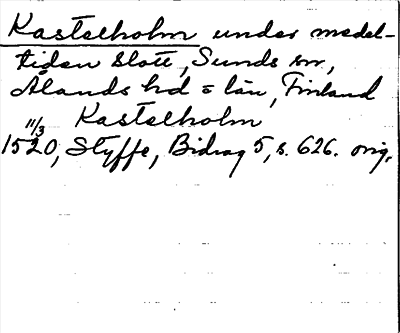 Kastelholm under medel-
tiden slott, Sunds sn,
Ålands hd o län, Finland
Kastelholm
11/3
1520, Styffe, Bidrag 5, s. 626. orig.